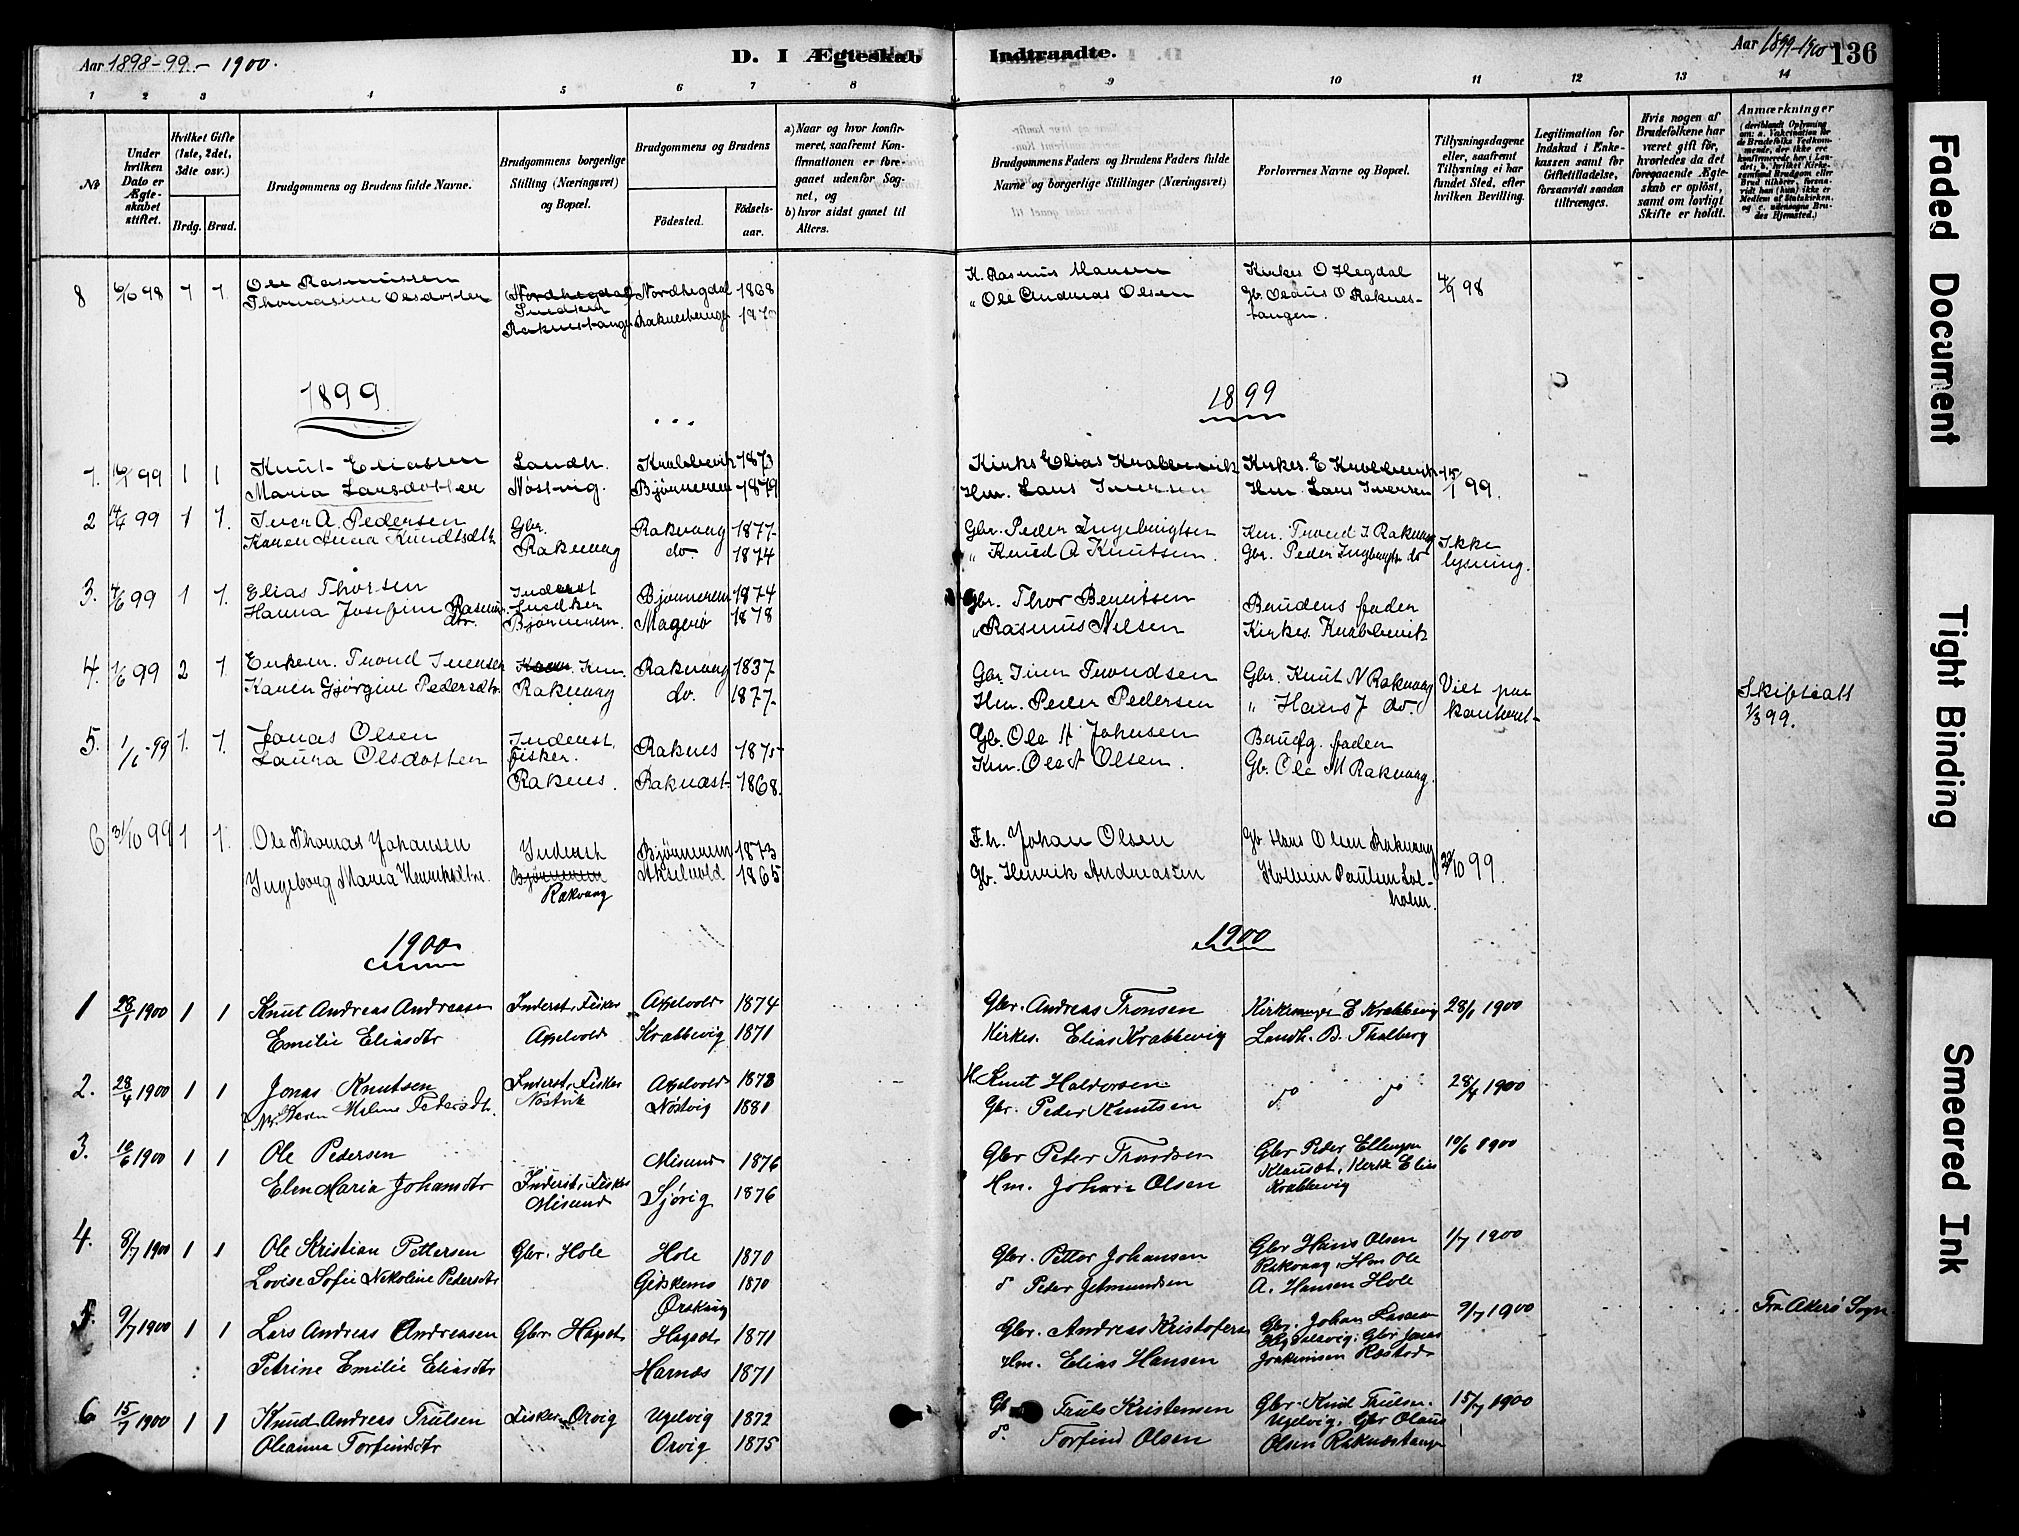 Aar 1898-99.- 1900.
D. I Ægteskab
Indtraadte.
Aar 1899-1900
136
1 2 3 4 5 6 7 8
9 10 11 12 13 14
No
Under hvilken Dato er Ægteskabet stiftet.
Hvilket Gifte (1ste, 2det, 3die osv.)
Brdg. Brud.
Brudgommens og Brudens fulde Navne.
Brudgommens borgerlige Stilling (Næringsvei) og Bopæl.
Brudgommens og Brudens
Födested.
Födsels-aar.
a) Naar og hvor konfir-
meret, saafremt Kon-
firmationen er fore-
gaaet udenfor Sog-
net, og
b) hvor sidst gaaet til
Alters.
Brudgommens Faders og Brudens Faders fulde
Navne og borgerlige Stillinger (Næringsvei)
Forlovernes Navne og Bopæl.
Tillysningsdagene
eller, saafremt
Tillysning ei har
fundet Sted, efter
hvilken Bevilling.
Legitimation for
Indskud i Enke-
kassen samt for
Giftetilladelse,
forsaavidt saadan
tiltrænges.
Hvis nogen af
Brudefolkene har
været gift för,
hvorledes da det
foregaaende Ægte-
skab er oplöst,
samt om lovligt
Skifte er holdt.
Anmærkninger
8 98 1 1 Ole Rasmussen Nordhegdal Nordhegdal 1868 K. Rasmus Hansen Kirkes O Hegdal 4/9 98
Thomasine Olsdotter Indsen Raknestangen " Ole Andreas Olsen Gb. Olaus O Raknes-
tangen.
1899
1899
1. 99 1 1 Knut Eliassen Landh. Krabbevik 1873 Kirks Elias Krabbevik Kirkes. E Krabbevik 15/1 99.
Maria Larsdotter Nøstvig. Bjørnerem 1879 Hm. Lars Iversen Hm Lars Iversen
2 99 1 1. Iver A. Pedersen Gbr. Rakvaag 1877 Gbr. Peder Ingebrigtsen Km. Trond I Rakvaag Ikke
Karen Anna Knudtsdtr Rakvaag do. 1874 " Knud A Knutsen. Gbr. Peder Ingbrigts do lysning.
3. 99 1 1. Elias Thorsen Inderst Bjørnerem 1874 Gbr. Thor Berntsen Brudens fader
Hanna Josefine Rasmus-dtr. Bjørnerem. Magerø 1878 " Rasmus Nilsen Kirkes. Krabbevik
4. 1/6 99 2 1. Enkem. Trond Iversen Km. Rakvaag 1837 Gbr. Iver Trondsen Gbr. Knut N Rakvaag Viet paa
Karen Gjørgine Pedersdtr. Rakvaag do. 1877 Hm. Peder Pedersen " Hans J do. kontoret Skifteatt
1/3 99.
5. 1/6 -99 1. 1. Jonas Olsen Inderst, fisker. Raknes 1875 Gb. Ole H Johnsen Brudg. fader
Laura Olsdotter Raknes. Raknæst 1868. Km. Ole A Olsen. Gb. Ole M Rakvaag.
6 31/10 99 1 1. Ole Thomas Johansen Inderst Bjørnerem 1873 F.h. Johan Olsen Gb Hans Olsen Rakvaag 29/10 99.
Ingeborg Maria Henriksdtr. Bjørnerem Rakvaag Akselvold 1865 Gb. Henrik Andreassen
holm.
1900
1900
1 28/1 1900 1 1 Knut Andreas Andreasen Inderst, Fisker Axelvold 1874 Gbr. Andreas Tronsen Kirkesanger E Krabbevig 28/1 1900
Emilie Eliasdtr Axelvold Krabbevig 1871 Kirkes. Elias Krabbevig Landh. B. Thalberg
2. 28/4 1900 1 1 Jonas Knutsen Inderst, Fisker Axelvold 1878 H. Knut Haldorsen do do 28/4 1900
Nøstvik Nøstvig 1881 Gbr. Peder Knutsen
3. 10/6 1900 1 1 Ole Pedersen Misund 1876 Gbr Peter Trondsen Gbr Peder Ellingsen 10/6 1900
Elen Maria Johansdtr Inderst, Fisker Misund Sjøvig 1876 Hm. Johan Olsen Klauset, Kirks Elias
Krabbevig
4. 8/7 1900 1 1 Ole Kristian Pettersen Gbr. Hole Hole 1870 Gbr. Petter Johansen Gbr Hans Olsen 1/7 1900
Lovise Sofie Nekoline Pedersdtr Gidskemo Ørskoug 1870 do Peder Jetmundsen Rakvaag, Hm Ole
A. Hansen Hole
5. 9/7 1900 1 1 Lars Andreas Andreasen Gbr Hapst Hapst 1871 Gbr. Andreas Kristofersen Gbr. Johan Larsen 9/7 1900 Fra Akerø Sogn.
Petrine Emilie Eliasdtr Harnæs 1871 Hm. Elias Hansen Gbr Jonas
Joakimsen Røstad
6 15/7 1900 1 1 Knud Andreas Trulsen Fisker Orvig Ugelvig 1872 Gb Truls Kristensen Gbr. Knud Trulsen. 15/7 1900
Oleanna Torfinsdtr Orvig 1875 do. Torfind Olsen Ugelvig, Gbr Olaus
Olsen Raknestange
Faded Document
Tight Binding
Smeared Ink